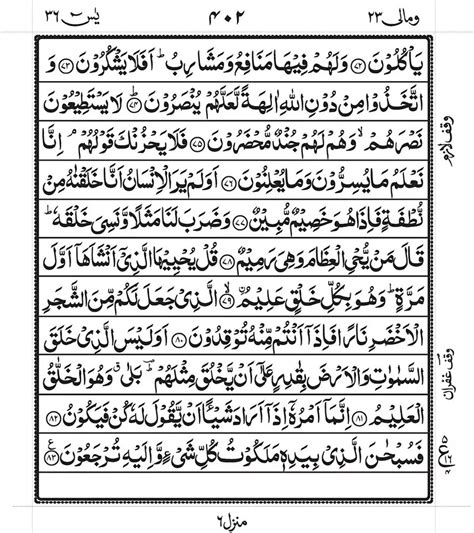 ومالی ۲۳ ۴۰۲ یٰسٓ ۳۶
یَاْكُلُوْنَ ﴿۷۲﴾ وَلَهُمْ فِیْهَا مَنَافِعُ وَمَشَارِبُ ؕ اَفَلَا یَشْكُرُوْنَ ﴿۷۳﴾ وَ
اتَّخَذُوْا مِنْ دُوْنِ اللّٰهِ اٰلِهَةً لَّعَلَّهُمْ یُنْصَرُوْنَ ﴿۷۴﴾ لَا یَسْتَطِیْعُوْنَ
نَصْرَهُمْ ۙ وَهُمْ لَهُمْ جُنْدٌ مُّحْضَرُوْنَ ﴿۷۵﴾ فَلَا یَحْزُنْكَ قَوْلُهُمْ ۘ اِنَّا
نَعْلَمُ مَا یُسِرُّوْنَ وَمَا یُعْلِنُوْنَ ﴿۷۶﴾ اَوَلَمْ یَرَ الْاِنْسَانُ اَنَّا خَلَقْنٰهُ مِنْ
نُّطْفَةٍ فَاِذَا هُوَ خَصِیْمٌ مُّبِیْنٌ ﴿۷۷﴾ وَضَرَبَ لَنَا مَثَلًا وَّنَسِیَ خَلْقَهٗ ؕ
قَالَ مَنْ یُّحْیِ الْعِظَامَ وَهِیَ رَمِیْمٌ ﴿۷۸﴾ قُلْ یُحْیِیْهَا الَّذِیْۤ اَنْشَاَهَاۤ اَوَّلَ
مَرَّةٍ ؕ وَهُوَ بِكُلِّ خَلْقٍ عَلِیْمُ ﴿۷۹﴾ۙ الَّذِیْ جَعَلَ لَكُمْ مِّنَ الشَّجَرِ
الْاَخْضَرِ نَارًا فَاِذَاۤ اَنْتُمْ مِّنْهُ تُوْقِدُوْنَ ﴿۸۰﴾ اَوَلَیْسَ الَّذِیْ خَلَقَ
السَّمٰوٰتِ وَالْاَرْضَ بِقٰدِرٍ عَلٰۤی اَنْ یَّخْلُقَ مِثْلَهُمْ ؕ بَلٰی ۗ وَهُوَ الْخَلّٰقُ
الْعَلِیْمُ ﴿۸۱﴾ اِنَّمَاۤ اَمْرُهٗۤ اِذَاۤ اَرَادَ شَیْـًٔا اَنْ یَّقُوْلَ لَهٗ كُنْ فَیَكُوْنُ ﴿۸۲﴾
فَسُبْحٰنَ الَّذِیْ بِیَدِهٖ مَلَكُوْتُ كُلِّ شَیْءٍ وَّاِلَیْهِ تُرْجَعُوْنَ ﴿۸۳﴾ ع
وقف لازم
وقف غفران
منزل ۶